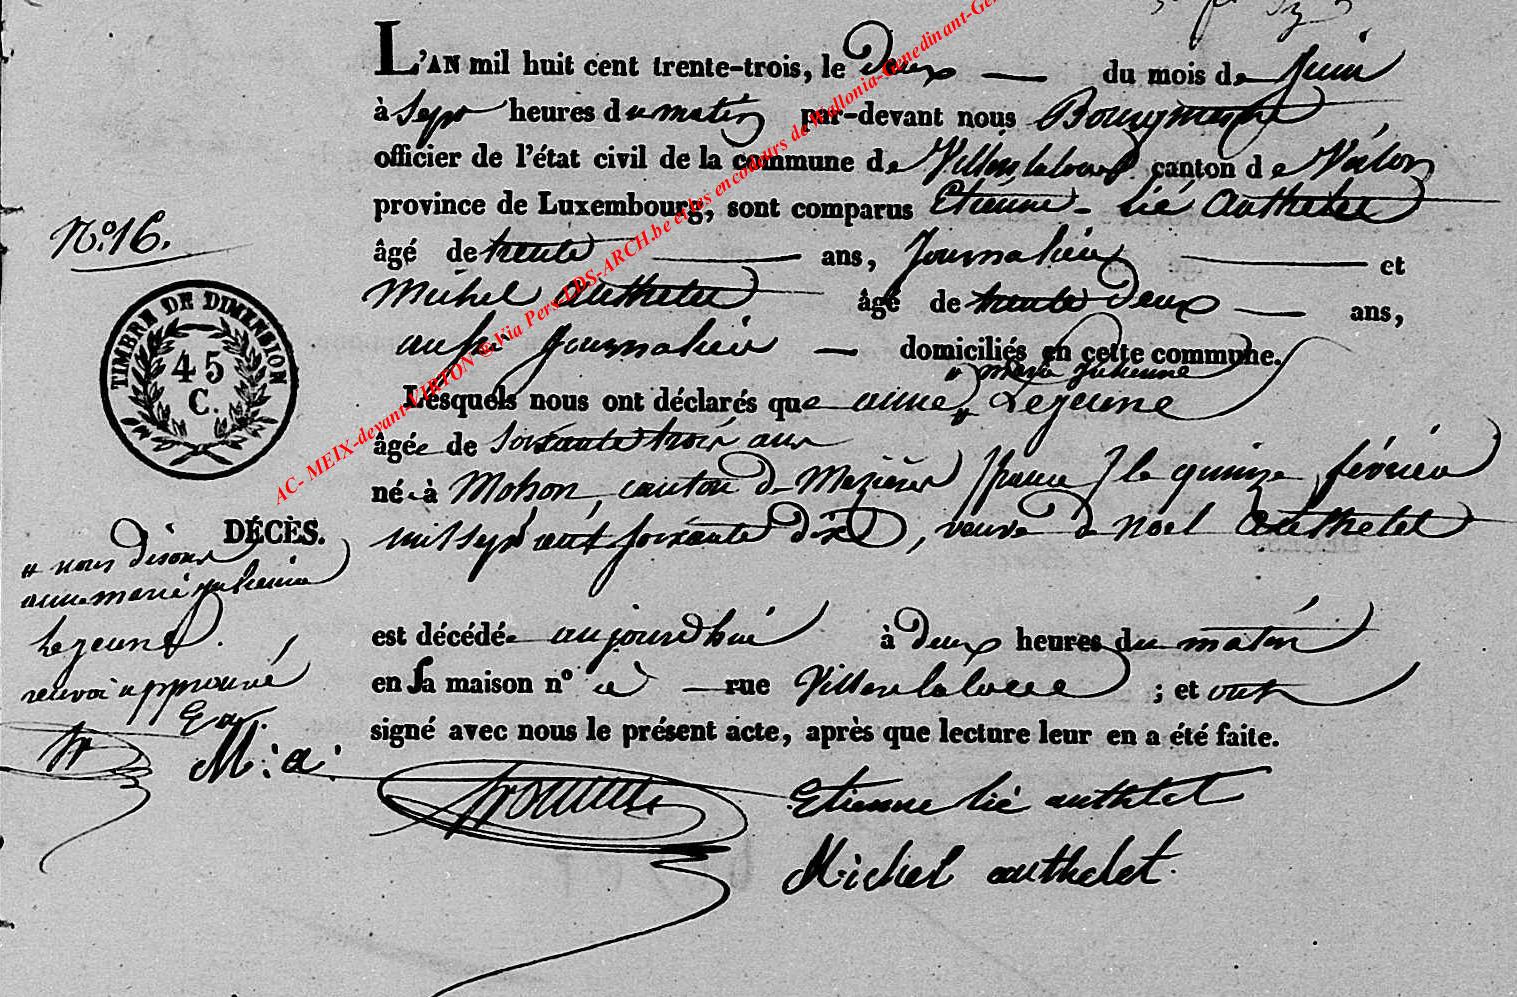 L'AN mil huit cent trente-trois, le deux du mois de Juin
à Sept heures du matin par-devant nous Bourgmestre
officier de l'état civil de la commune de Villers laloue canton de Virton
province de Luxembourg, sont comparus Etienne lié authelet
N.o 16.
âgé de trente ans, Journalier et
Michel authelet âgé de trente deux ans,
TIMBRE DE DIMENSION
45
C.
aussi Journalier domiciliés en cette commune.
" marie julienne
Lesquels nous ont déclarés que anne " Lejeune
âgée de soixante trois ans
née à Mohon, canton de Mezieres (france) le quinze février
DÉCÈS.
mil sept cent soixante dix, veuve de Noel authelet
" nous disons
anne marie julienne
Lejeune.
renvoi approuvé
est décédée aujourd'hui à deux heures du matin
en sa maison no rue Villers laloue ; et ont
signé avec nous le présent acte, après que lecture leur en a été faite.
E a.
M: a:
Etienne lié authelet
Michel authelet.
AC- MEIX-devant-VIRTON © Via Pers LDS-ARCH.be et les encodeurs de Wallonia-Genedinant-Ge